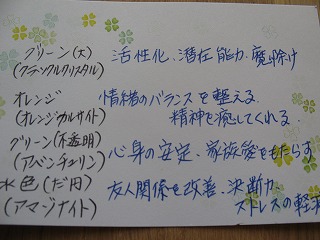 グリーン(大) 活性化、潜在能力、魔除け
(クラックルクリスタル)
オレンジ 情緒のバランスを整える、
(オレンジカルサイト) 精神を癒してくれる、
グリーン(不透明)
(アベンチュリン) 心身の安定、家族愛をもたらす
水色(だ円) 友人関係を改善、決断力、
(アマゾナイト) ストレスの軽減